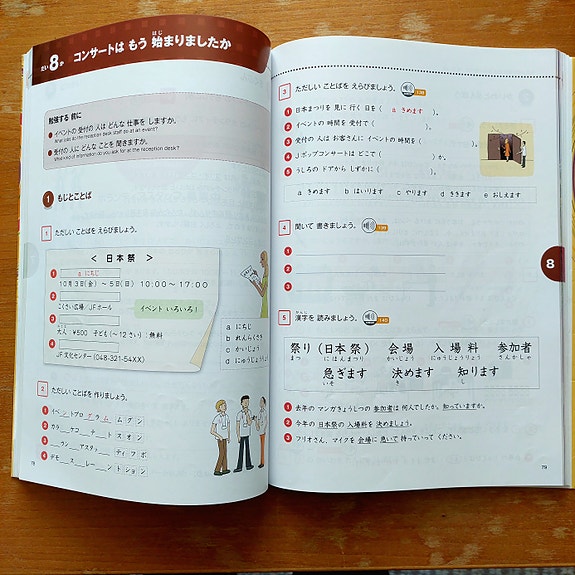 だい8か コンサートは もう 始まりましたか
はじ
勉強する 前に
イベントの 受付の 人は どんな 仕事を しますか。
What jobs do the reception desk staff do at an event?
受付の 人に どんな ことを 聞きますか。
What kind of information do you ask for at the reception desk?
1 もじとことば
1 ただしい ことばを えらびましょう。
< 日本祭 >
1 a にちじ
10月3日(金)〜5日(日) 10:00〜17:00
2
こくさい広場/JFホール
イベント いろいろ!
3
大人:¥500 子ども(〜12さい):無料
4
JF文化センター(048-321-54XX)
a にちじ
b れんらくさき
c かいじょう
d にゅうじょうりょう
2 ただしい ことばを 作りましょう。
1 イベントプログラム ムグン
2 カラ ケコ チ トスオン
3 ラン アスタッ ティフボ
4 デモ ス レー トション
78
3 ただしい ことばを えらびましょう。 138
1 日本まつりを 見に 行く 日を( a きめます )。
2 イベントの 時間を 受付で( )。
3 受付の 人は お客さんに イベントの 時間を( )。
4 Jポップコンサートは どこで( )か。
5 うしろの ドアから しずかに( )。
a きめます b はいります c やります d ききます e おしえます
4 聞いて 書きましょう。 139
1
2
3
5 漢字を 読みましょう。 140
かんじ
祭り(日本祭) 会場 入場料 参加者
まつ にほんまつり かいじょう にゅうじょうりょう さんかしゃ
急ぎます 決めます 知ります
いそ き し
1 去年の マンガきょうしつの 参加者は 何人でしたか。知っていますか。
2 今年の 日本祭の 入場料を 決めましょう。
3 フリオさん、マイクを 会場に 急いで 持っていって ください。
79
8